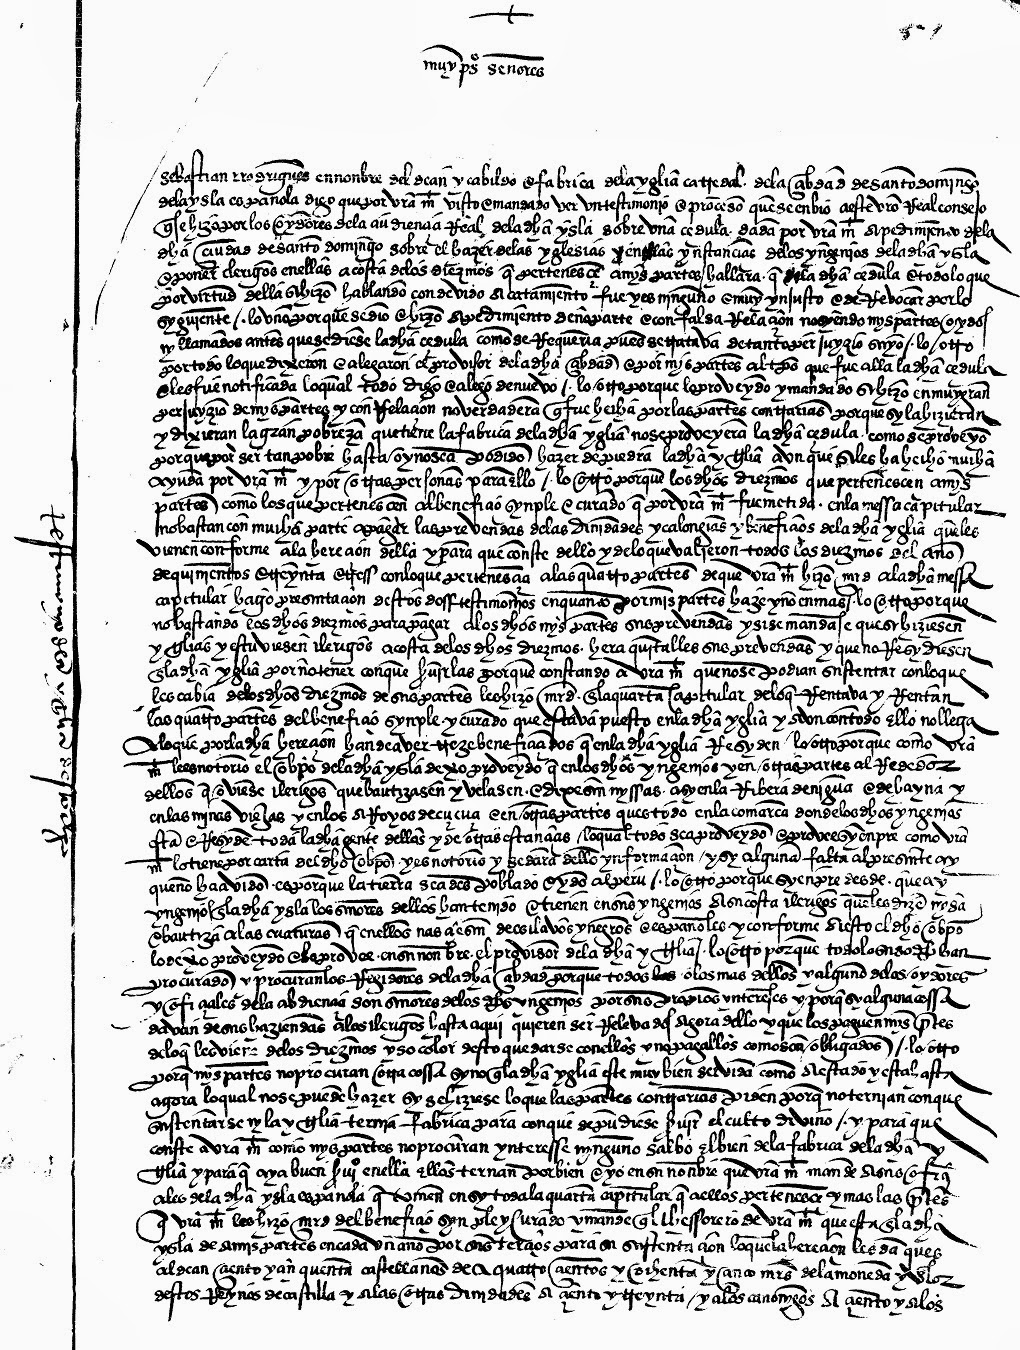 51
muy pos señores
sebastian rrodrigues en nonbre del dean y cabildo e fabrica de la yglia catredal de la çibdad de santo domingo
de la ysla española digo que por vra mt visto e mandado ver un testimonio e proceso que se enbio a este vro Real consejo
q se hizo por los oydores de la audiençia Real de la dha ysla sobre una cedula dada por vra mt a pedimiento de la
dha ciudad de santo domingo sobre el hazer de las yglesias y en las ynstancias de los yngenios de la dha ysla
e poner clerigos en ellas a costa de los diezmos q pertenesce a mys partes hallara q la dha cedula e todo lo que
por virtud della se hizo hablando con devido acatamiento fue y es ninguno e muy ynjusto e de Revocar por lo
syguiente / lo uno porque se dio e hizo a pedimiento de no parte e con falsa Relaçion no syendo mys partes oydos
ny llamados antes que se diese la dha cedula como se Requeria pues se tratava de tanto perjuyzio suyo / lo otro
por todo lo que dixeron e alegaron el provisor de la dha çibdad e por mys partes al tpo que fue alla la dha cedula
e les fue notificada lo qual todo digo e alego de nuevo / lo otro porque lo proveydo y mandado se hizo en muy gran
perjuyzio de mys partes y con Relaçion no verdadera q fue hecha por las partes contrarias porque sy la hizieran
y dixieran la gran pobreza que tiene la fabrica de la dha yglia no se proveyera la dha cedula como se proveyo
porque por ser tan pobre hasta oy no sea podido hazer de piedra la dha yglia aunque se les ha hecho mucha
ayuda por vra mt y por otras personas para ello / lo otro porque los dhos diezmos que pertenescen a mys
partes como los que pertenescen al benefiçio synple e curado q por vra mt fue metida en la messa capitular
no bastan con mucha parte a pagar las prevendas de las dinidades y calongias y benefiçios de la dha yglia que les
vienen conforme a la hereçion della y para que conste dello y de lo que valieron todos los diezmos del año
de quinientos e treynta e tres con lo que pertenesçia a las quatro partes de que vra mt hizo mrd a la dha messa
capitular hago presentaçion destos dos testimonios en quanto por mis partes haze y no en mas / lo otro porque
no bastando los dhos diezmos para pagar a los dhos mys partes sus prevendas y si se mandase que se hiziesen
yglias y estuviesen clerigos a costa de los dhos diezmos hera quitalles sus prevendas y que no Resydiesen
en la dha yglia por no tener con que servirlas porque constando a vra mt que no se podian sustentar con lo que
les cabia de los dhos diezmos de sus partes les hizo mrd de la quarta capitular de lo q Rentava y Rentan
las quatro partes del benefiçio synple y curado que estava puesto en la dha yglia y aun con todo ello no llega
a lo que por la dha hereçion han de aver treze benefiçiados que en la dha yglia Resyden / lo otro porque como vra
mt les notorio el obpo de la dha ysla dexo proveydo q en los dhos yngenios y en otras partes al Rededor
dellos q oviese clerigos que bautizasen y velasen e dixesen myssas asy en la Ribera de nigua e de hayna y
en las minas viejas y en los aRoyos de cucua e en otras partes que es todo en la comarca donde los dhos yngenios
estan e Resyde toda la dha gente dellas y de otras estançias lo qual todo sea proveydo e provee syenpre como vra
mt lo tiene por carta del dho obpo y es notorio y se dara dello ynformaçion / y sy alguna falta al presente ay
que no ha avido es porque la tierra sea despoblado e ydo al peru / lo otro porque syenpre desde que ay
yngenios en la dha ysla los señores dellos han tenido e tienen en sus yngenios a su costa clerigos que les dize mysa
e bautiza a las criaturas q en ellos nasçen de esclavos y negros e españoles y conforme a esto el dho obpo
lo dexo proveydo e lo provee en su nonbre el provisor de la dha yglia / lo otro porque todo lo suso dho han
procurado y procuran los Regidores de la dha çibdad porque todos o los mas dellos y alguno de los oydores
y ofiçiales de la abdiençia son señores de los dhos yngenios por sus propios yntereses y porq sy alguna cossa
davan de sus haziendas a los clerigos hasta aqui quieren ser Relevados agora dello y que los paguen mis ptes
de lo q les viene de los diezmos y so color desto quedarse con ellos y no pagallos como son obligados / lo otro
porq mys partes no procuran otra cossa syno q la dha yglia este muy bien servida como a estado y esta hasta
agora lo qual no se puede hazer sy se hiziese lo que las partes contrarias piden porq no ternian con que
sustentarse ny la yglia ternia fabrica para con que se pudiese servir el culto divino / y para que
conste a vra mt como mys partes no procuran ynteresse ninguno salbo el bien de la fabrica de la dha y
glia y para q aya buen serviçio en ella ellos ternan por bien e yo en su nonbre que vra mt mande a sus ofiçi
ales de la dha ysla española q tomen en sy toda la quarta capitular q a ellos pertenesce y mas las ptes
q vra mt les hizo mrd del benefiçio synple y curado y mande q el thessorero de vra mt que esta en la dha
ysla de a mis partes en cada un año por sus terçios para su sustentaçion lo que la hereçion les da que es
al dean çiento y çinquenta castellanos de a quatroçientos y ochenta y çinco mrs de la moneda y valor
destos Reynos de castilla y a las otras dinidades a çiento y treynta / y a los canonigos a çiento y a los